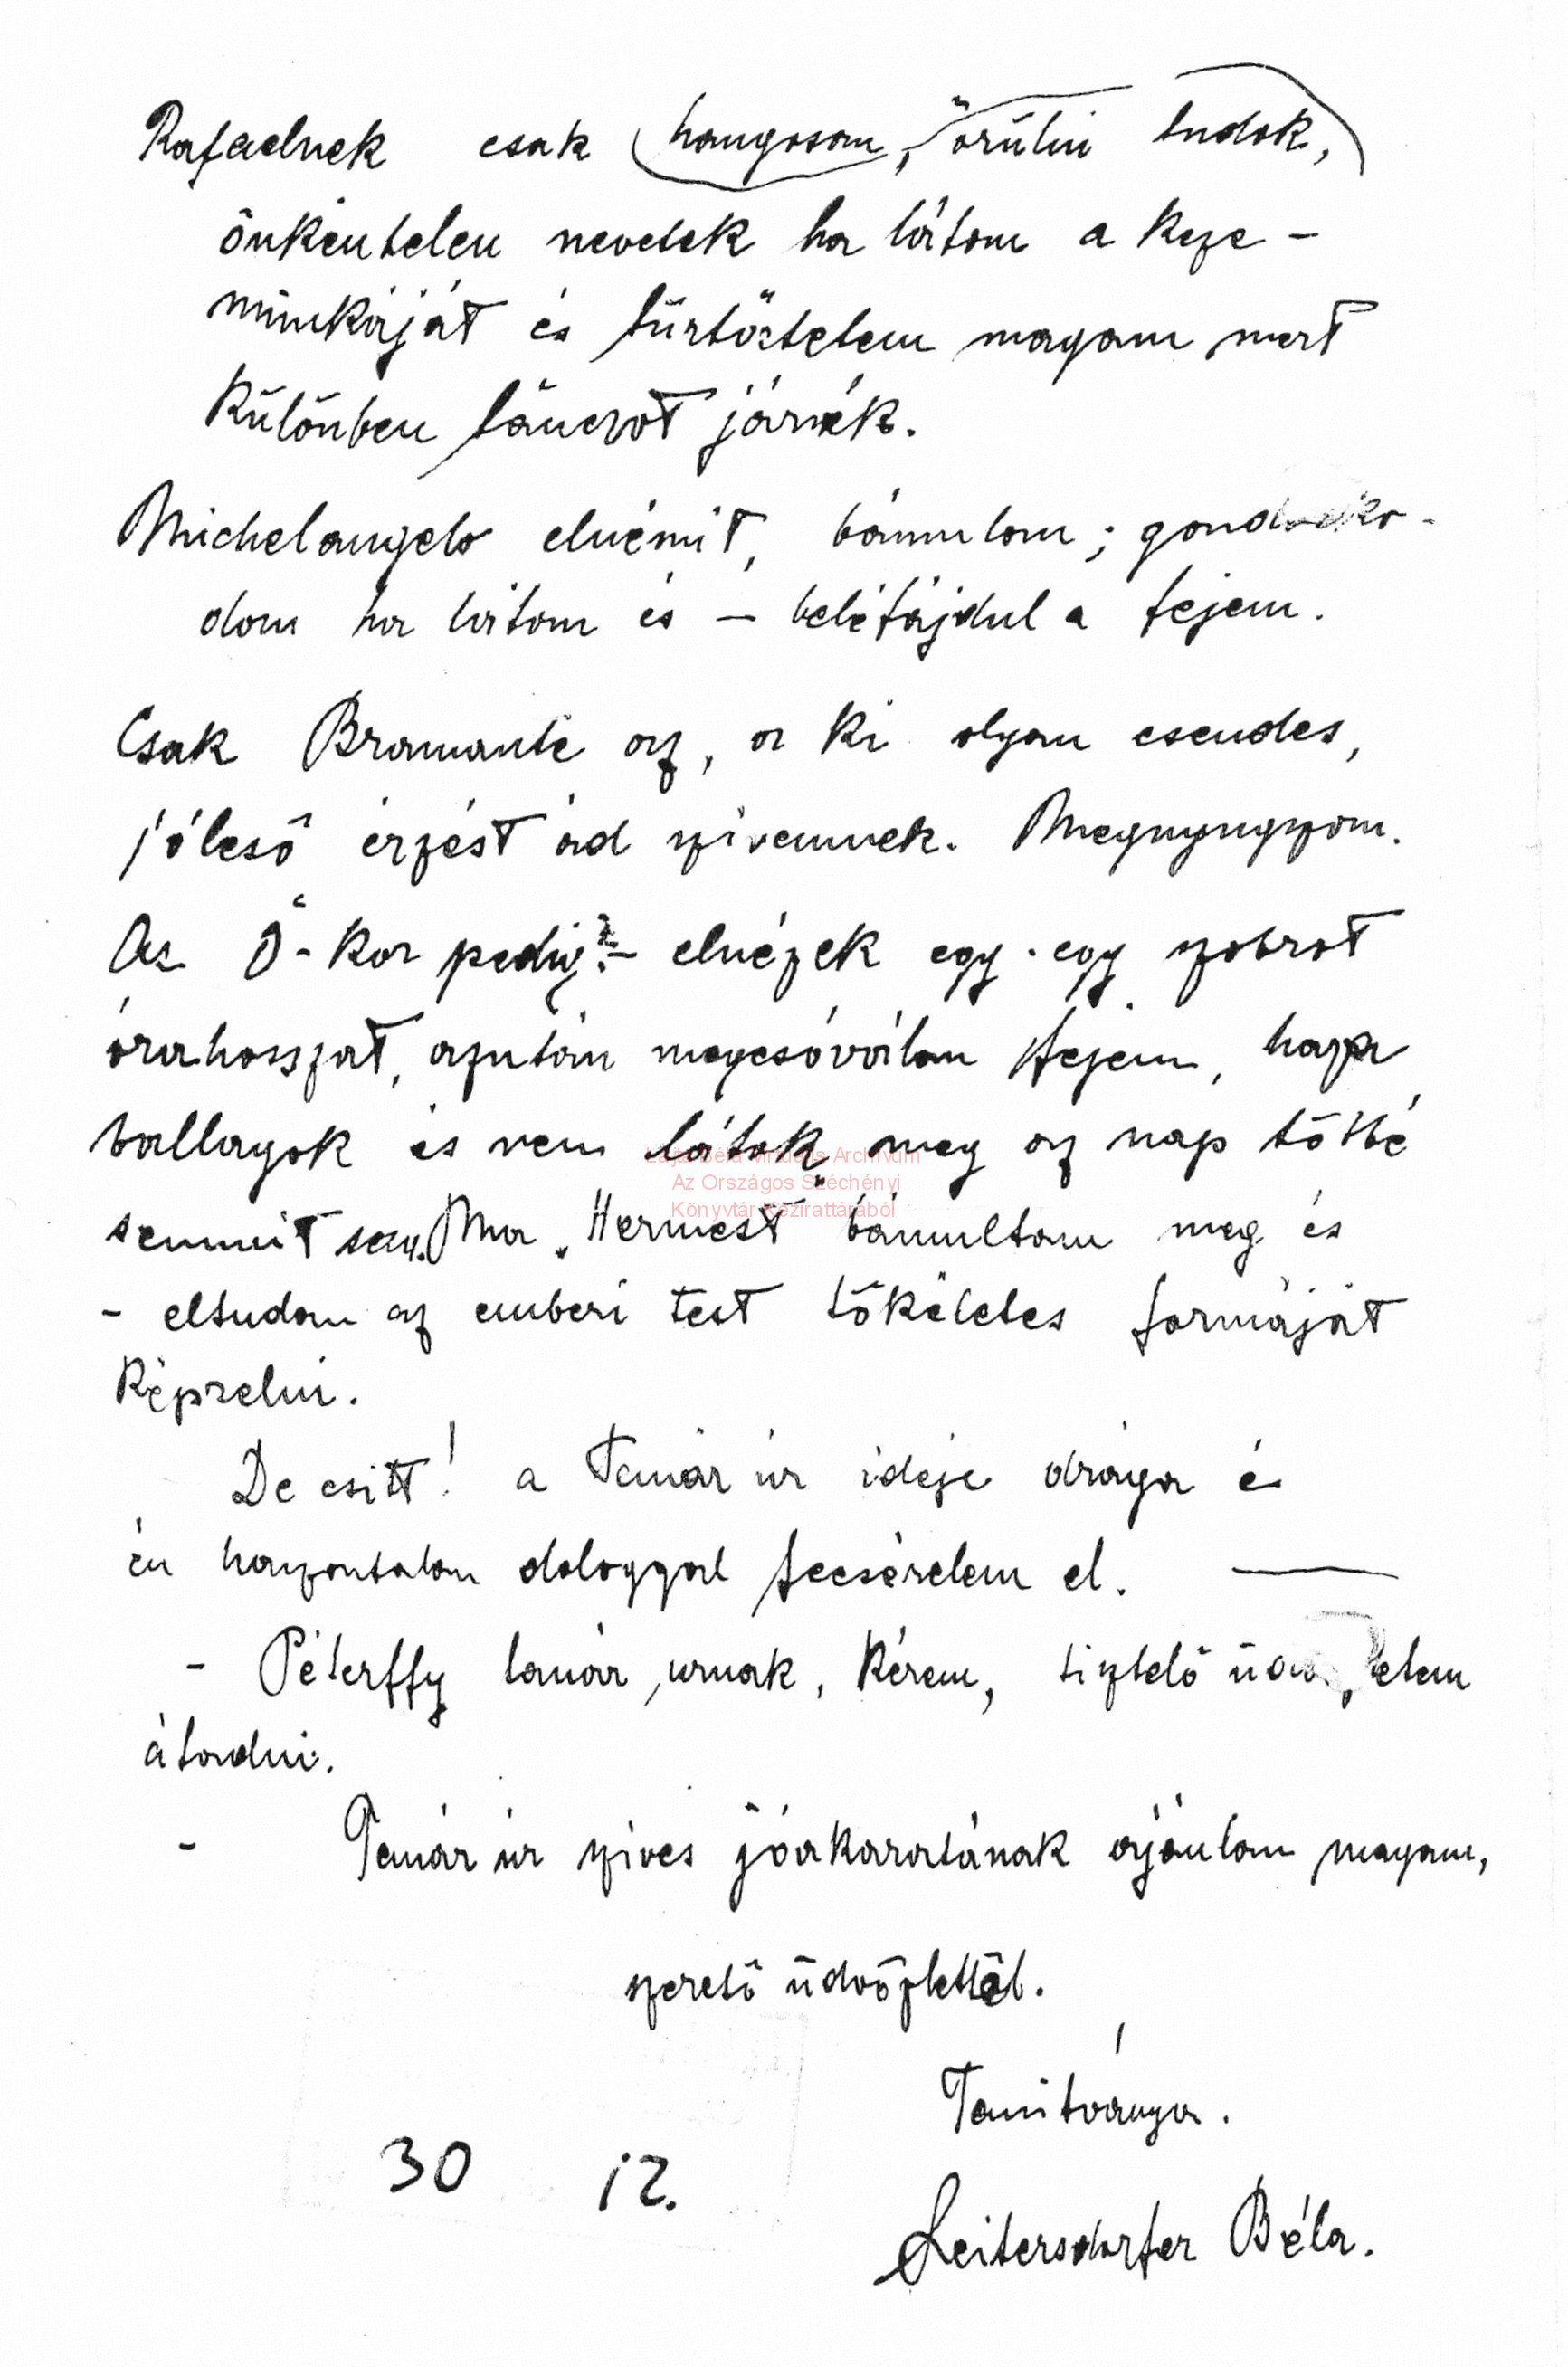 Rafaelnek csak hangosan, örülni tudok,
önkéntelen nevetek ha látom a keze-
munkáját és türtöztetem magam mert
különben táncrot járnék.
Michelangelo elnémit, bámulom; gondolko-
dom ha látom és – beléfájdul a fejem.
Csak Bramante az, a ki olyan csendes,
jóleső érzést ád szivemnek. Megnyugszom.
Az Ó-kor pedig? – elnézek egy-egy szobrot
órahosszat, azután megcsóválom fejem, haza
ballagok és nem látok meg az nap többé
semmit sem. Ma „Hermest" bámultam meg és
– eltudom az emberi test tökéletes formáját
képzelni.
De csitt! a Tanár úr ideje drága és
én haszontalan dologgal fecsérelem el. —
– Péterffy tanár urnak, kérem, tisztelő üdvözletem
átadni.
– Tanár úr szives jóakaratának ajánlom magam,
szerető üdvözlettel.
Tanitványa.
30 12.
Leitersdorfer Béla.
Lajta Béla Virtuális Archívum
Az Országos Széchényi
Könyvtár Kézirattárából